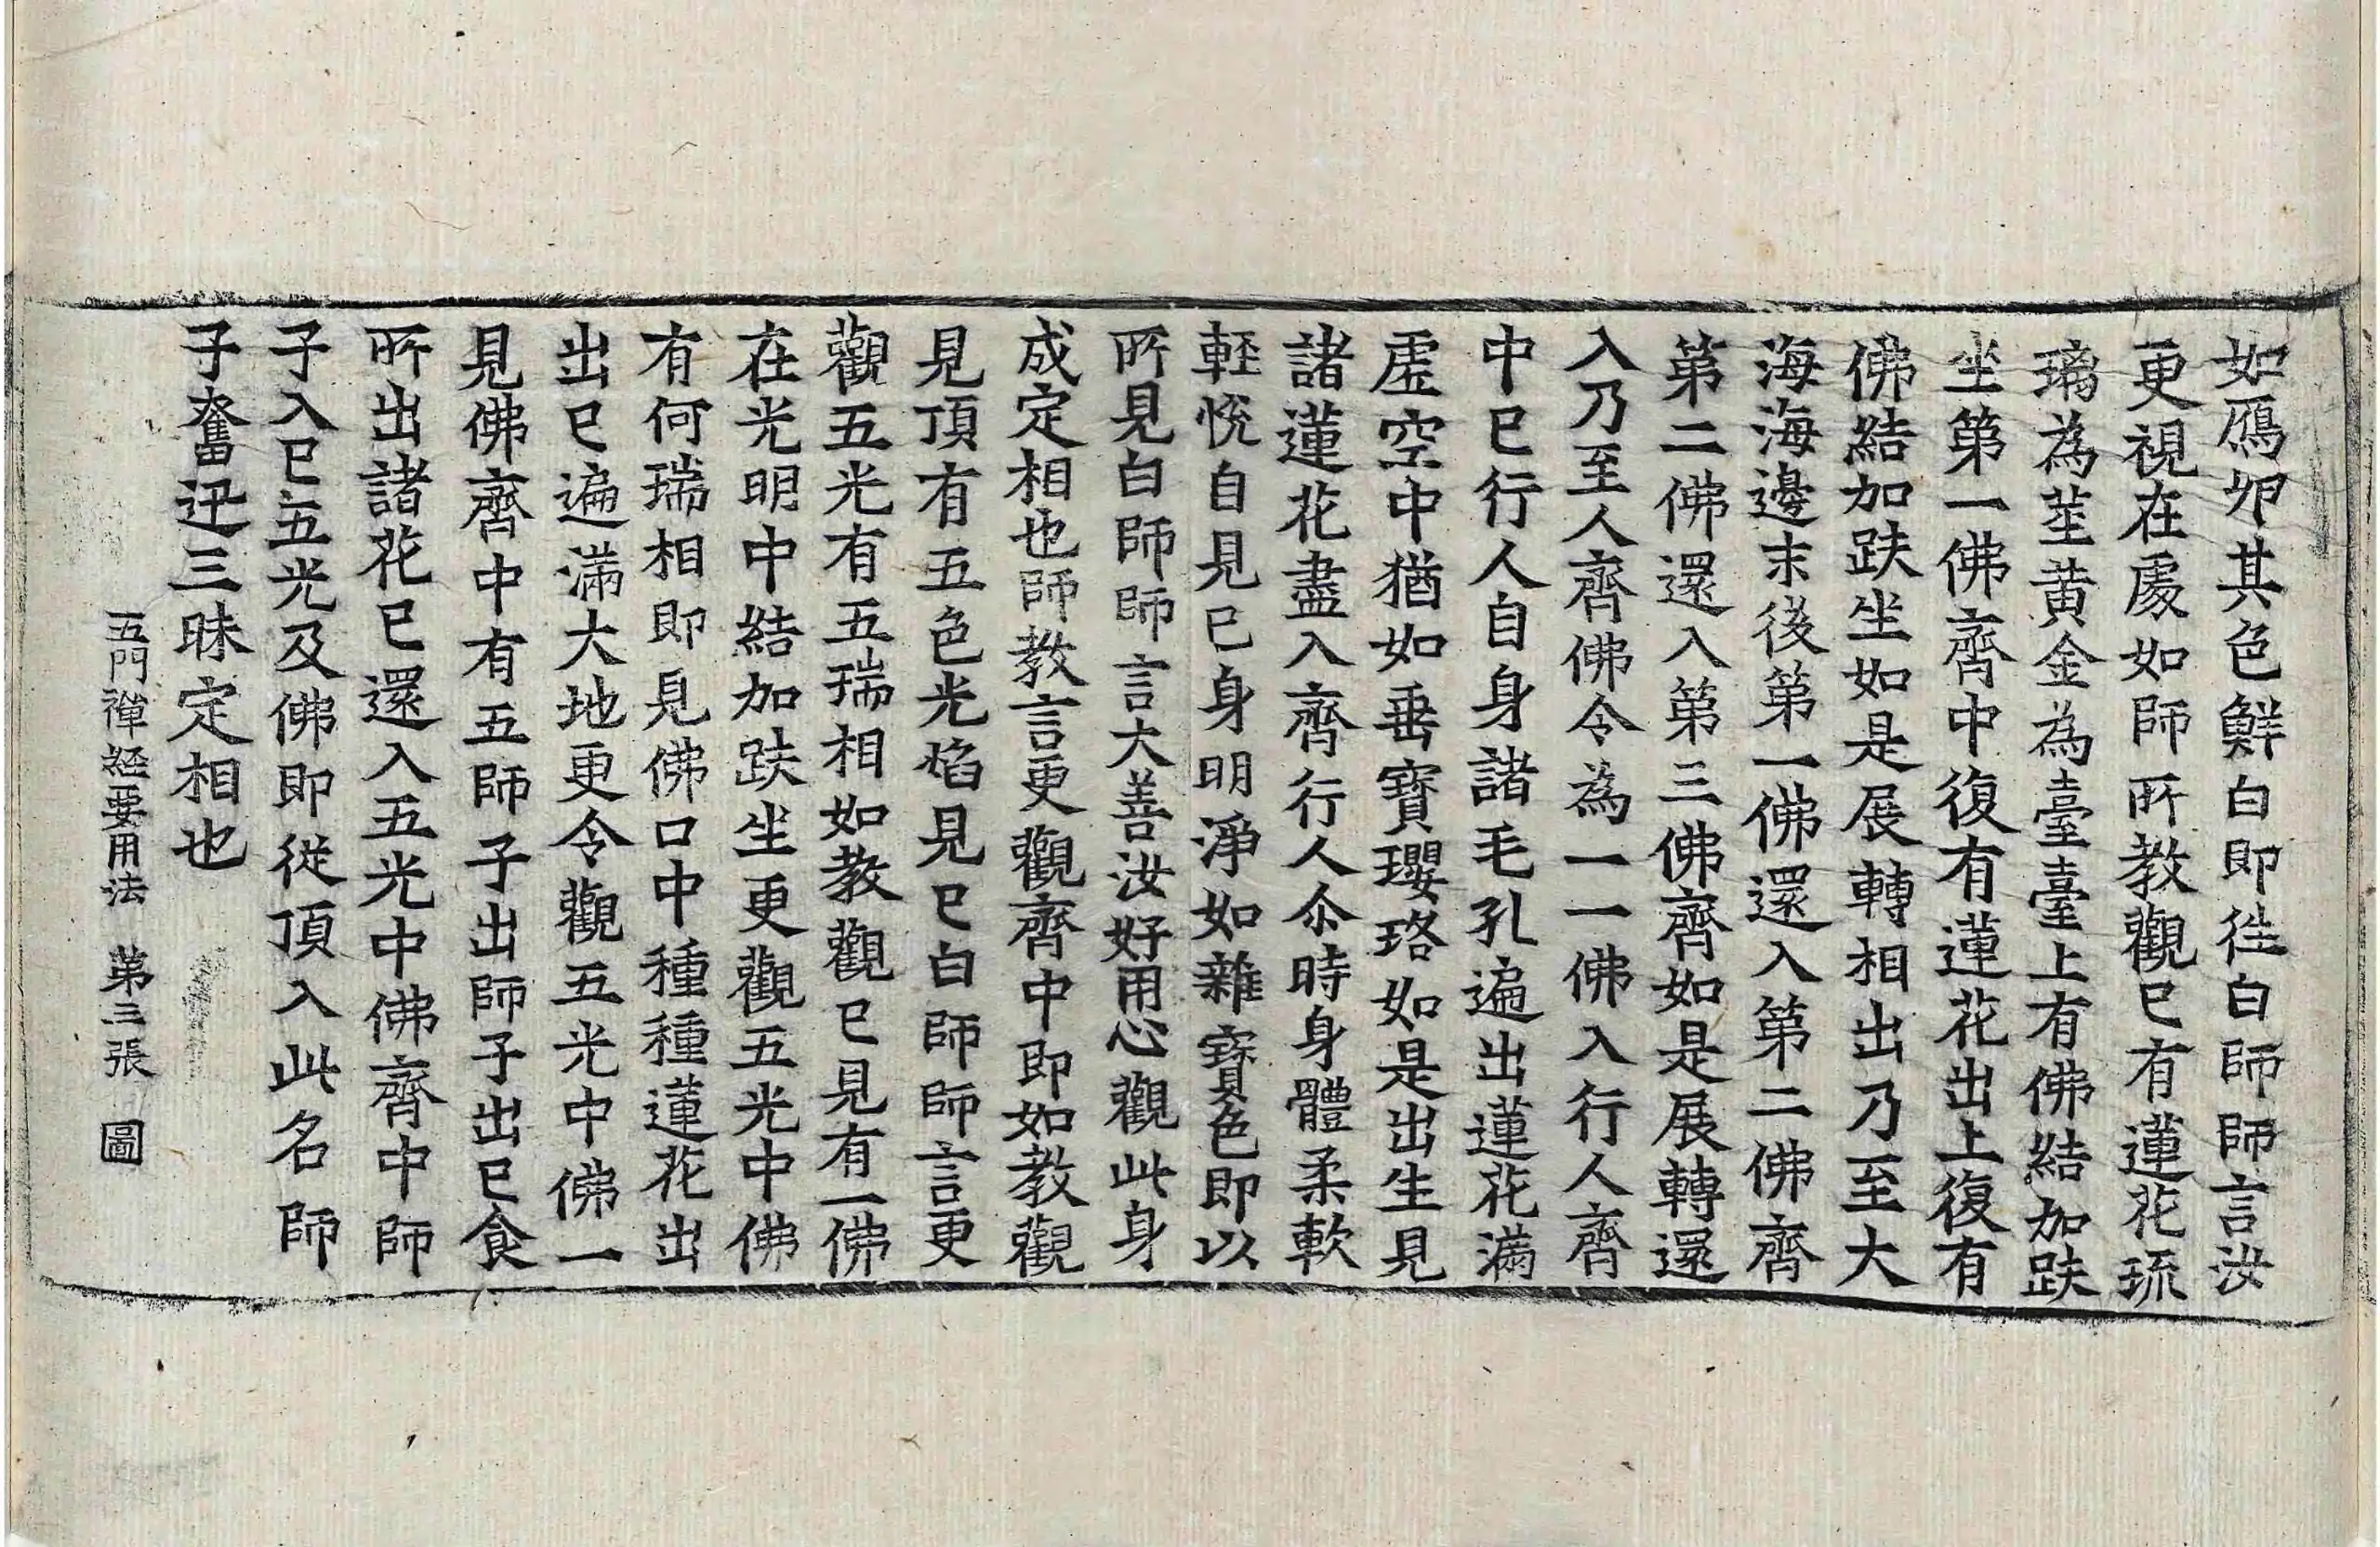 如鴈夘其色鮮白即往白師師言汝
更視在處如師所教觀已有蓮花琉
璃為莖黄金為臺臺上有佛結加趺
坐第一佛齊中復有蓮花出上復有
佛結加趺坐如是展轉相出乃至大
海海邊末後第一佛還入第二佛齊
第二佛還入第三佛齊如是展轉還
入乃至人齊佛令為一一佛入行人齊
中已行人自身諸毛孔遍出蓮花滿
虛空中猶如垂寶瓔珞如是出生見
諸蓮花盡入齊行人尒時身體柔軟
軽悅自見已身明淨如雜寳色即以
所見白師師言大善汝好用心觀此身
成定相也師教言更觀齊中即如教觀
見頂有五色光焰見已白師師言更
觀五光有五瑞相如教觀已見有一佛
在光明中結加趺坐更觀五光中佛
有何瑞相即見佛口中種種蓮花出
出已遍滿大地更令觀五光中佛一
見佛齊中有五師子出師子出已食
所出諸花已還入五光中佛齊中師
子入已五光及佛即從頂入此名師
子奮迅三昧定相也
五門禪経要用法 第三張 圖